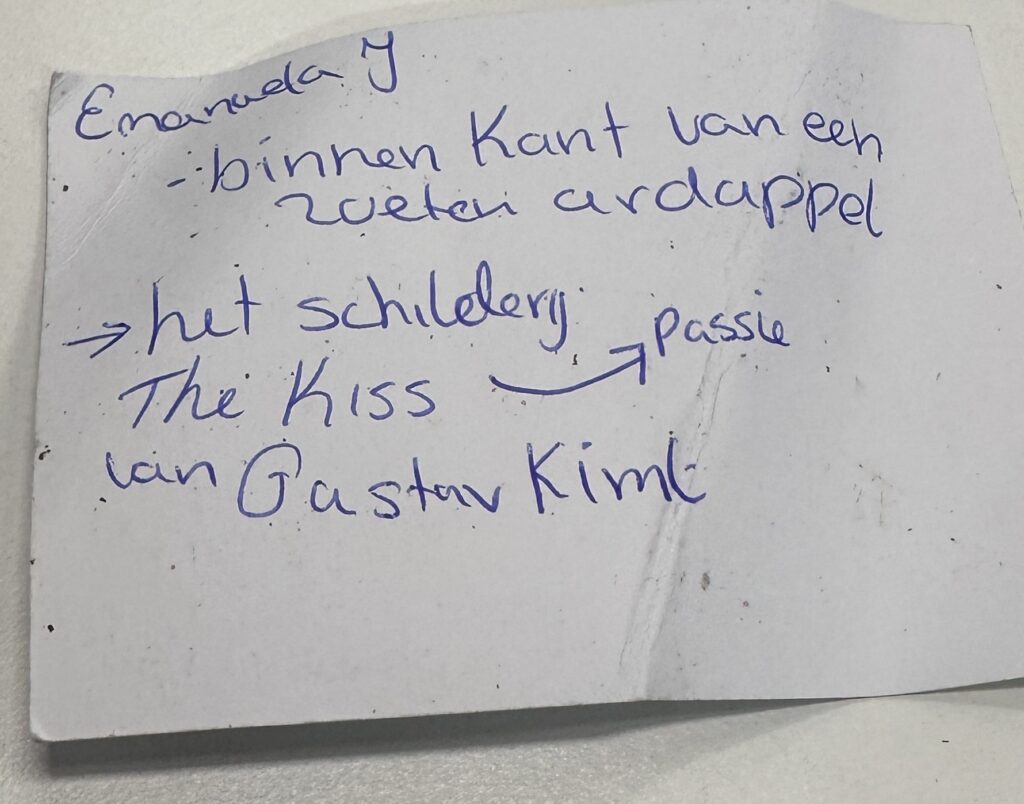 Emanuela J
- binnen Kant van een
zoeten ardappel
→ het schilderij
The Kiss → passie
van Gustav Kimt